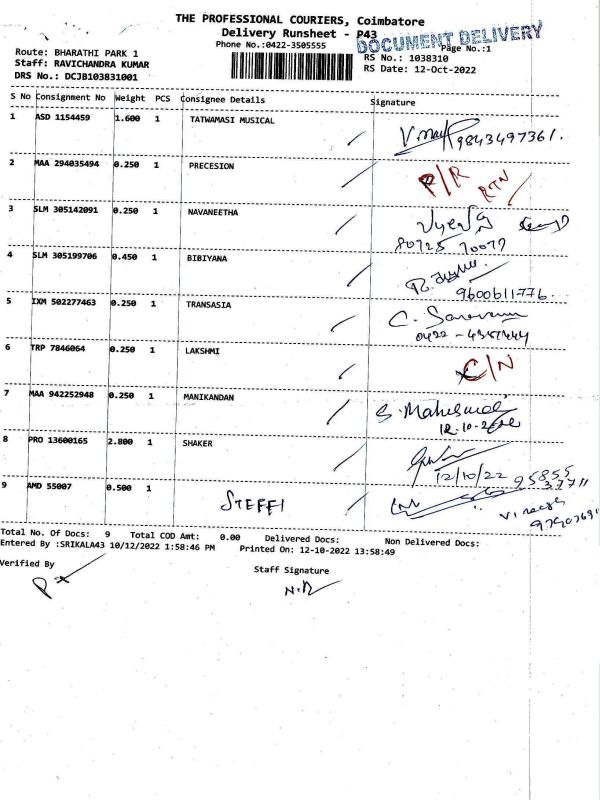 THE PROFESSIONAL COURIERS, Coimbatore
Delivery Runsheet - P43
DOCUMENT DELIVERY
Phone No.:0422-3505555
Page No.:1
Route: BHARATHI PARK 1
RS No.: 1038310
Staff: RAVICHANDRA KUMAR
RS Date: 12-Oct-2022
DRS No.: DCJB103831001
S No Consignment No Weight PCS Consignee Details Signature
1 ASD 1154459 1.600 1 TATWAMASI MUSICAL
9843497361.
2 MAA 294035494 0.250 1 PRECESION
P/R RTN
3 SLM 305142091 0.250 1 NAVANEETHA
80725 70077
4 SLM 305199706 0.450 1 BIBIYANA
9600611776.
5 IXM 502277463 0.250 1 TRANSASIA
C. Saravanan
6 TRP 7846064 0.250 1 LAKSHMI
C/N
7 MAA 942252948 0.250 1 MANIKANDAN
12.10.2022
8 PRO 13600165 2.800 1 SHAKER
12/10/22 95855
9 AMD 55007 0.500 1 STEFFI
Total No. Of Docs: 9 Total COD Amt: 0.00 Delivered Docs: Non Delivered Docs:
Entered By :SRIKALA43 10/12/2022 1:58:46 PM Printed On: 12-10-2022 13:58:49
Verified By
Staff Signature